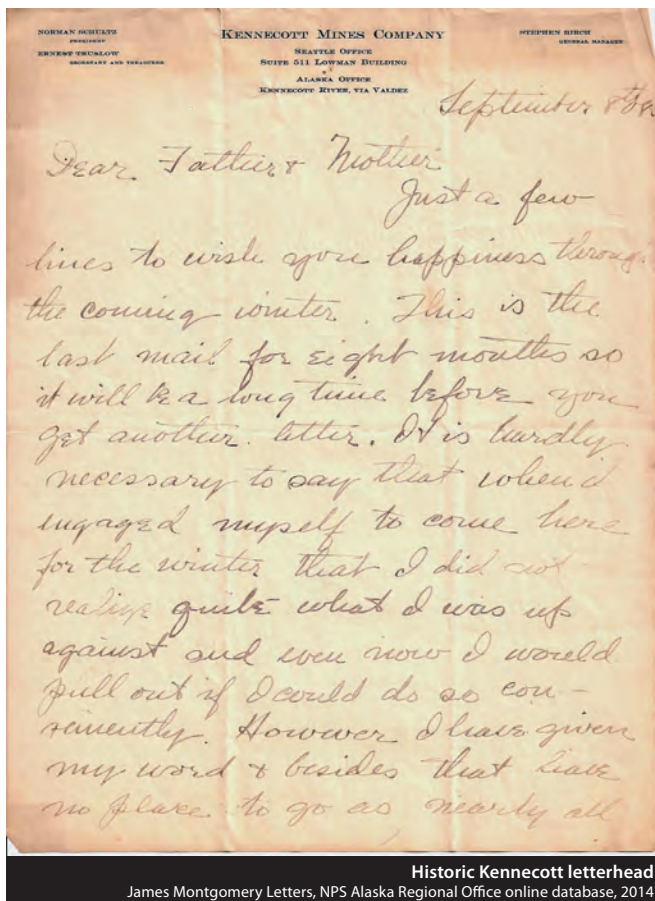 NORMAN SCHULTZ
PRESIDENT
ERNEST TRUSLOW
SECRETARY AND TREASURER
KENNECOTT MINES COMPANY
SEATTLE OFFICE
SUITE 511 LOWMAN BUILDING
ALASKA OFFICE
KENNECOTT RIVER, VIA VALDEZ
STEPHEN BIRCH
GENERAL MANAGER
September 8th
Dear Father & Mother
Just a few
lines to wish you happiness throug
the coming winter. This is the
last mail for eight months so
it will be a long time before you
get another letter. It is hardly
necessary to say that when I
engaged myself to come here
for the winter that I did not
realize quite what I was up
against and even now I would
pull out if I could do so con-
veniently. However I have given
my word & besides that have
no place to go as nearly all
Historic Kennecott letterhead
James Montgomery Letters, NPS Alaska Regional Office online database, 2014